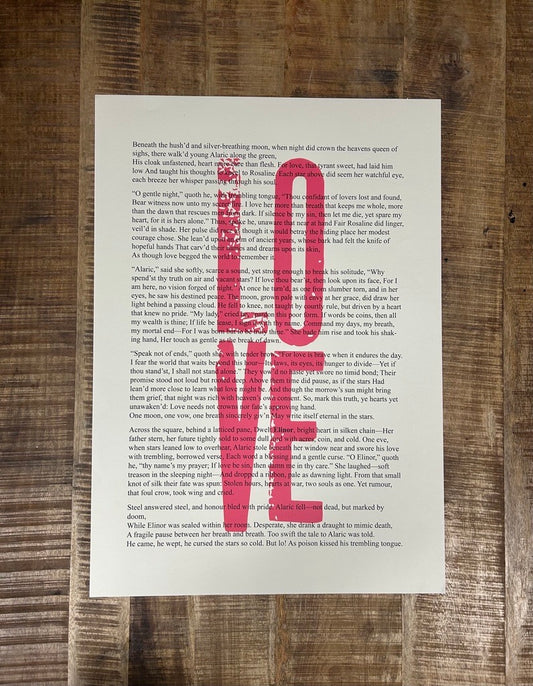 Beneath the hush'd and silver-breathing moon, when night did crown the heavens queen of
sighs, there walk'd young Alaric along the green,
His cloak unfastened, heart more bare than flesh. For love, that tyrant sweet, had laid him
low And taught his thoughts to Rosaline. Each star above did seem her watchful eye,
each breeze her whisper passing through his soul.
“O gentle night,” quoth he, with trembling tongue, “Thou confidant of lovers lost and found,
Bear witness now unto my sacred I love her more than breath that keeps me whole, more
than the dawn that rescues men from dark. If silence be my sin, then let me die, yet spare my
heart, for it is hers alone.” Thus spake he, unaware that near at hand Fair Rosaline did linger,
veil'd in shade. Her pulse did though it would betray the hiding place her modest
courage chose. She lean'd upon of ancient years, whose bark had felt the knife of
hopeful hands That carv'd their and dreams upon its skin,
As though love begged the world to remember it.
“Alaric,” said she softly, scarce a sound, yet strong enough to break his solitude, “Why
spend'st thy truth on air and vacant stars? If love thou bear'st, then look upon its face, For I
am here, no vision forged of night.” At once he turn'd, as one from slumber torn, and in her
eyes, he saw his destined peace. The moon, grown pale with envy at her grace, did draw her
light behind a passing cloud. He fell to knee, not taught by courtly rule, but driven by a heart
that knew no pride. “My lady,” cried poor form. If words be coin, then all
my wealth is thine; If life be hand and my days, my breath,
my mortal end—For I was to be thine.” She bade him rise and took his shak-
ing hand, Her touch as gentle as the break of dawn.
“Speak not of ends,” quoth she, with tender brow, “For love is brave when it endures the day.
I fear the world that waits beyond this hour—Its laws, its eyes, its hunger to divide—Yet if
thou stand'st, I shall not stand alone.” They vow'd no haste yet swore no timid bond; Their
promise stood not loud but And time did pause, as if the stars Had
lean'd more close to learn what love And though the morrow's sun might bring
them grief, that night was rich with heaven's consent. So, mark this truth, ye hearts yet
unawaken'd: Love needs not crowns nor approving hand.
One moon, one vow, one breath sincerely giv'n May write itself eternal in the stars.
Across the square, behind a latticed pane, Dwelt Elinor, bright heart in silken chain—Her
father stern, her future tightly told to some dull with coin, and cold. One eve,
when stars leaned low to overhear, Alaric stole her window near and swore his love
with trembling, borrowed verse, Each word a blessing and a gentle curse. “O Elinor,” quoth
he, “thy name's my prayer; If love be sin, then damn me in thy care.” She laughed—soft
treason in the sleeping night—And dropped a ribbon, pale as dawning light. From that small
knot of silk their fate was spun: Stolen hours, hearts at war, two souls as one. Yet rumour,
that foul crow, took wing and cried.
Steel answered steel, and honour bled with pride. Alaric fell—not dead, but marked by
doom,
While Elinor was sealed within her room. Desperate, she drank a draught to mimic death,
A fragile pause between her breath and breath. Too swift the tale to Alaric was told.
He came, he wept, he cursed the stars so cold. But lo! As poison kissed his trembling tongue.
LO
VE